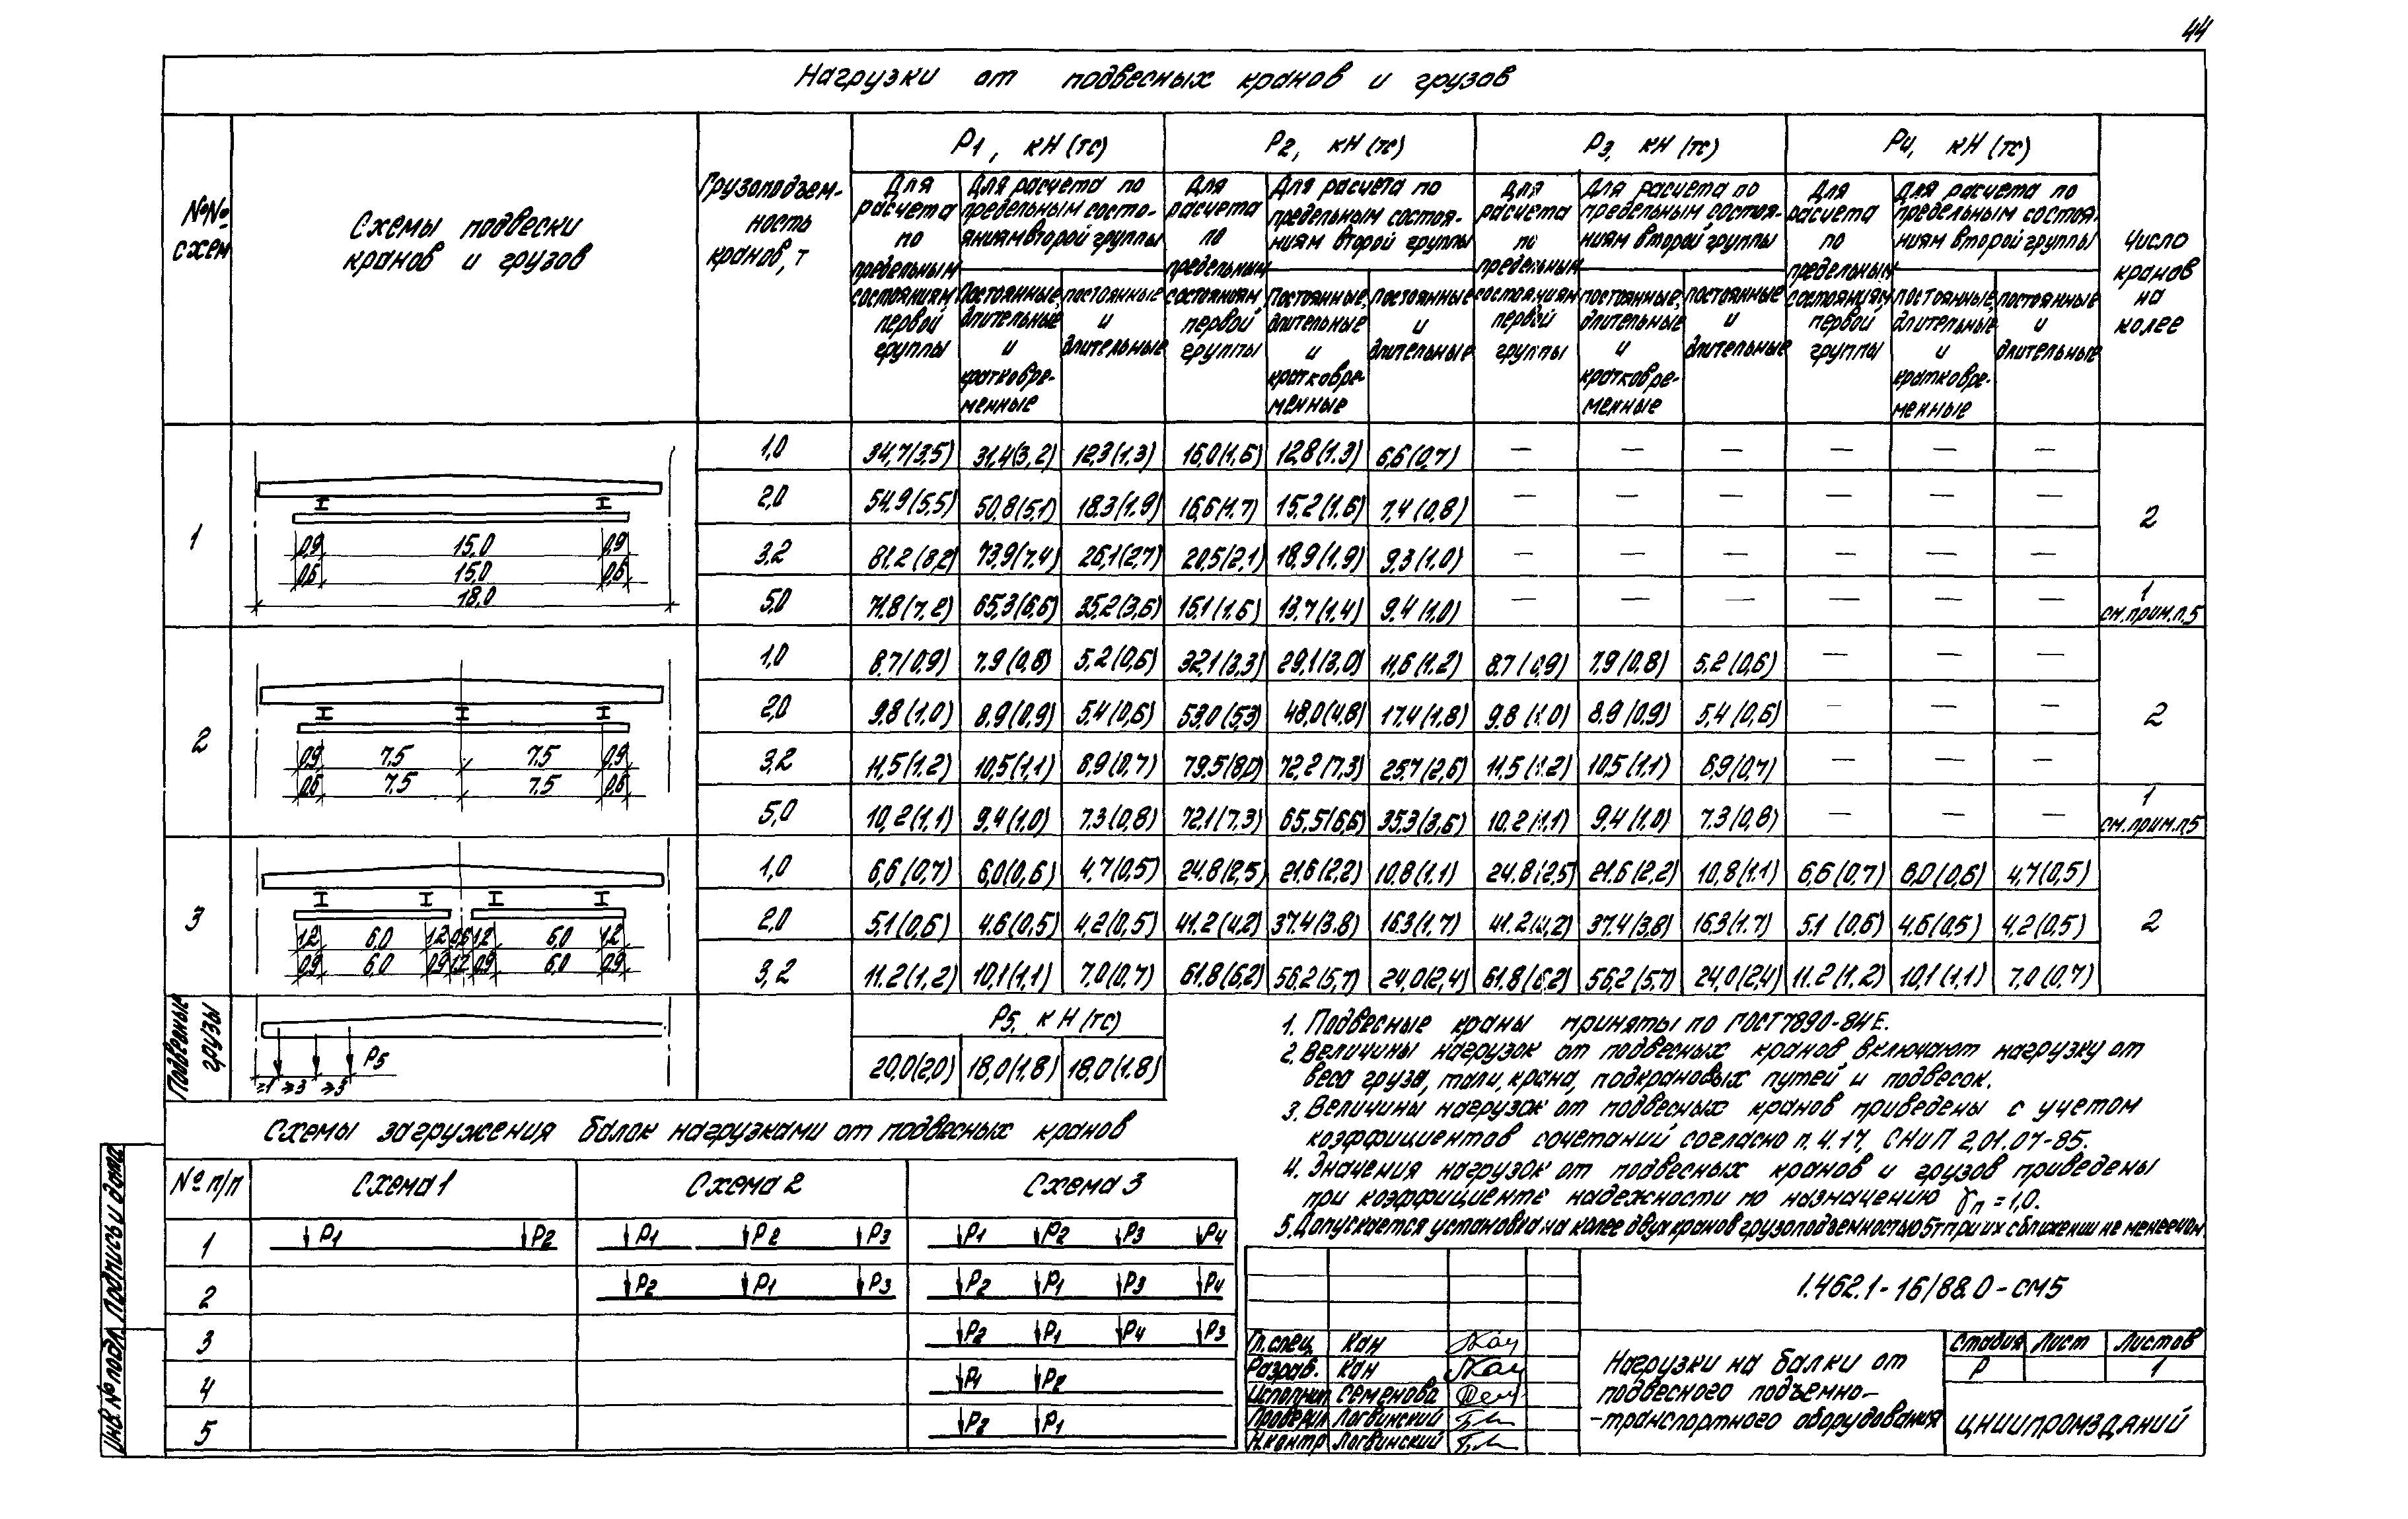 44
Нагрузки от подвесных кранов и грузов
№№ схем
Схемы подвески кранов и грузов
Грузоподъем-ность кранов, т
P1, кН (тс)
P2, кН (тс)
P3, кН (тс)
P4, кН (тс)
Число кранов на колее
Для расчета по предельным состояниям первой группы
Для расчета по предельным состо-яниям второй группы
Постоянные, длительные и кратковре-менные
постоянные и длительные
Для расчета по предельным состояниям первой группы
Для расчета по предельным состоя-ниям второй группы
Постоянные, длительные и кратковре-менные
постоянные и длительные
Для расчета по предельным состояниям первой группы
Для расчета по предельным состоя-ниям второй группы
постоянные, длительные и кратковре-менные
постоянные и длительные
Для расчета по предельным состояниям первой группы
Для расчета по предельным состоя-ниям второй группы
постоянные, длительные и кратковре-менные
постоянные и длительные
1
0,9 15,0 0,9
0,6 15,0 0,6
18,0
1,0 34,7(3,5) 31,4(3,2) 12,3(1,3) 16,0(1,6) 12,8(1.3) 6,6(0,7) — — — — — —
2,0 54,9(5,5) 50,8(5,1) 18.3(1.9) 16,6(1.7) 15.2(1.6) 7,4(0,8) — — — — — —
2
3,2 81.2(8,2) 73,9(7,4) 26,1(2,7) 20,5(2,1) 18,9(1,9) 9,3(1.0) — — — — — —
5,0 71.8(7,2) 65.3(6,6) 35,2(3,6) 15,1(1,6) 13,7(1,4) 9,4(1,0) — — — — — —
1 см.прим.п.5
2
0,9 7,5 7,5 0,9
0,6 7,5 7,5 0,6
1,0 8.7(0,9) 7,9(0,8) 5,2(0,6) 32,1(3,3) 29,1(3,0) 11,6(1.2) 8.7(0,9) 7,9(0,8) 5,2(0,6) — — —
2,0 9,8(1.0) 8.9(0,9) 5,4(0,6) 53,0(5,3) 48,0(4,8) 17,4(1.8) 9.8(1.0) 8.9(0.9) 5,4(0,6) — — —
2
3,2 11,5(1.2) 10,5(1,1) 6,9(0,7) 79.5(8,0) 72,2(7,3) 25,7(2,6) 11,5(1.2) 10,5(1,1) 6,9(0,7) — — —
5,0 10,2(1,1) 9,4(1,0) 7.3(0,8) 72.1(7,3) 65,5(6,6) 35,3(3,6) 10,2(1,1) 9,4(1,0) 7,3(0,8) — — —
1 см.прим.п.5
3
1,2 6,0 1,2 0,6 1,2 6,0 1,2
0,9 6,0 0,9 1,2 0,9 6,0 0,9
1,0 6,6(0,7) 6,0(0,6) 4,7(0,5) 24.8(2,5) 21.6(2,2) 10,8(1,1) 24.8(2,5) 21.6(2,2) 10,8(1.1) 6,6(0,7) 6,0(0,6) 4,7(0,5)
2,0 5,1(0,6) 4.6(0,5) 4,2(0,5) 41.2(4,2) 37.4(3.8) 16.3(1,7) 41.2(4,2) 37.4(3,8) 16,3(1.7) 5.1(0,6) 4.6(0,5) 4.2(0,5)
2
3,2 11.2(1,2) 10,1(1,1) 7.0(0,7) 61.8(6,2) 56,2(5,7) 24,0(2,4) 61.8(6,2) 56,2(5,7) 24,0(2,4) 11.2(1,2) 10,1(1,1) 7.0(0,7)
Подвесные грузы
P5
≥1 ≥3 ≥3
P5, кН (тс)
20,0(2,0) 18,0(1,8) 18,0(1.8)
1. Подвесные краны приняты по ГОСТ 7890-84Е.
2. Величины нагрузок от подвесных кранов включают нагрузку от
веса груза, тали, крана, подкрановых путей и подвесок.
3. Величины нагрузок от подвесных кранов приведены с учетом
коэффициентов сочетаний согласно п. 4.17, СНиП 2.01.07-85.
4. Значения нагрузок от подвесных кранов и грузов приведены
при коэффициенте надежности по назначению γп = 1,0.
5. Допускается установка на колее двух кранов грузоподъемностью 5т при их сближении не менее чем
Схемы загружения балок нагрузками от подвесных кранов
№ п/п Схема 1 Схема 2 Схема 3
1 P1 P2 P1 P2 P3 P1 P2 P3 P4
2 P2 P1 P3 P2 P1 P3 P4
3 P2 P1 P4 P3
4 P1 P2
5 P2 P1
Инв. № подл. Подпись и дата
1.462.1-16/88.0-СМ5
Гл.спец. Кан
Разраб. Кан
Исполнил Семенова
Проверил Логвинский
Н.контр Логвинский
Нагрузки на балки от
подвесного подъемно-
-транспортного оборудования
Стадия Лист Листов
Р 1
ЦНИИПРОМЗДАНИЙ